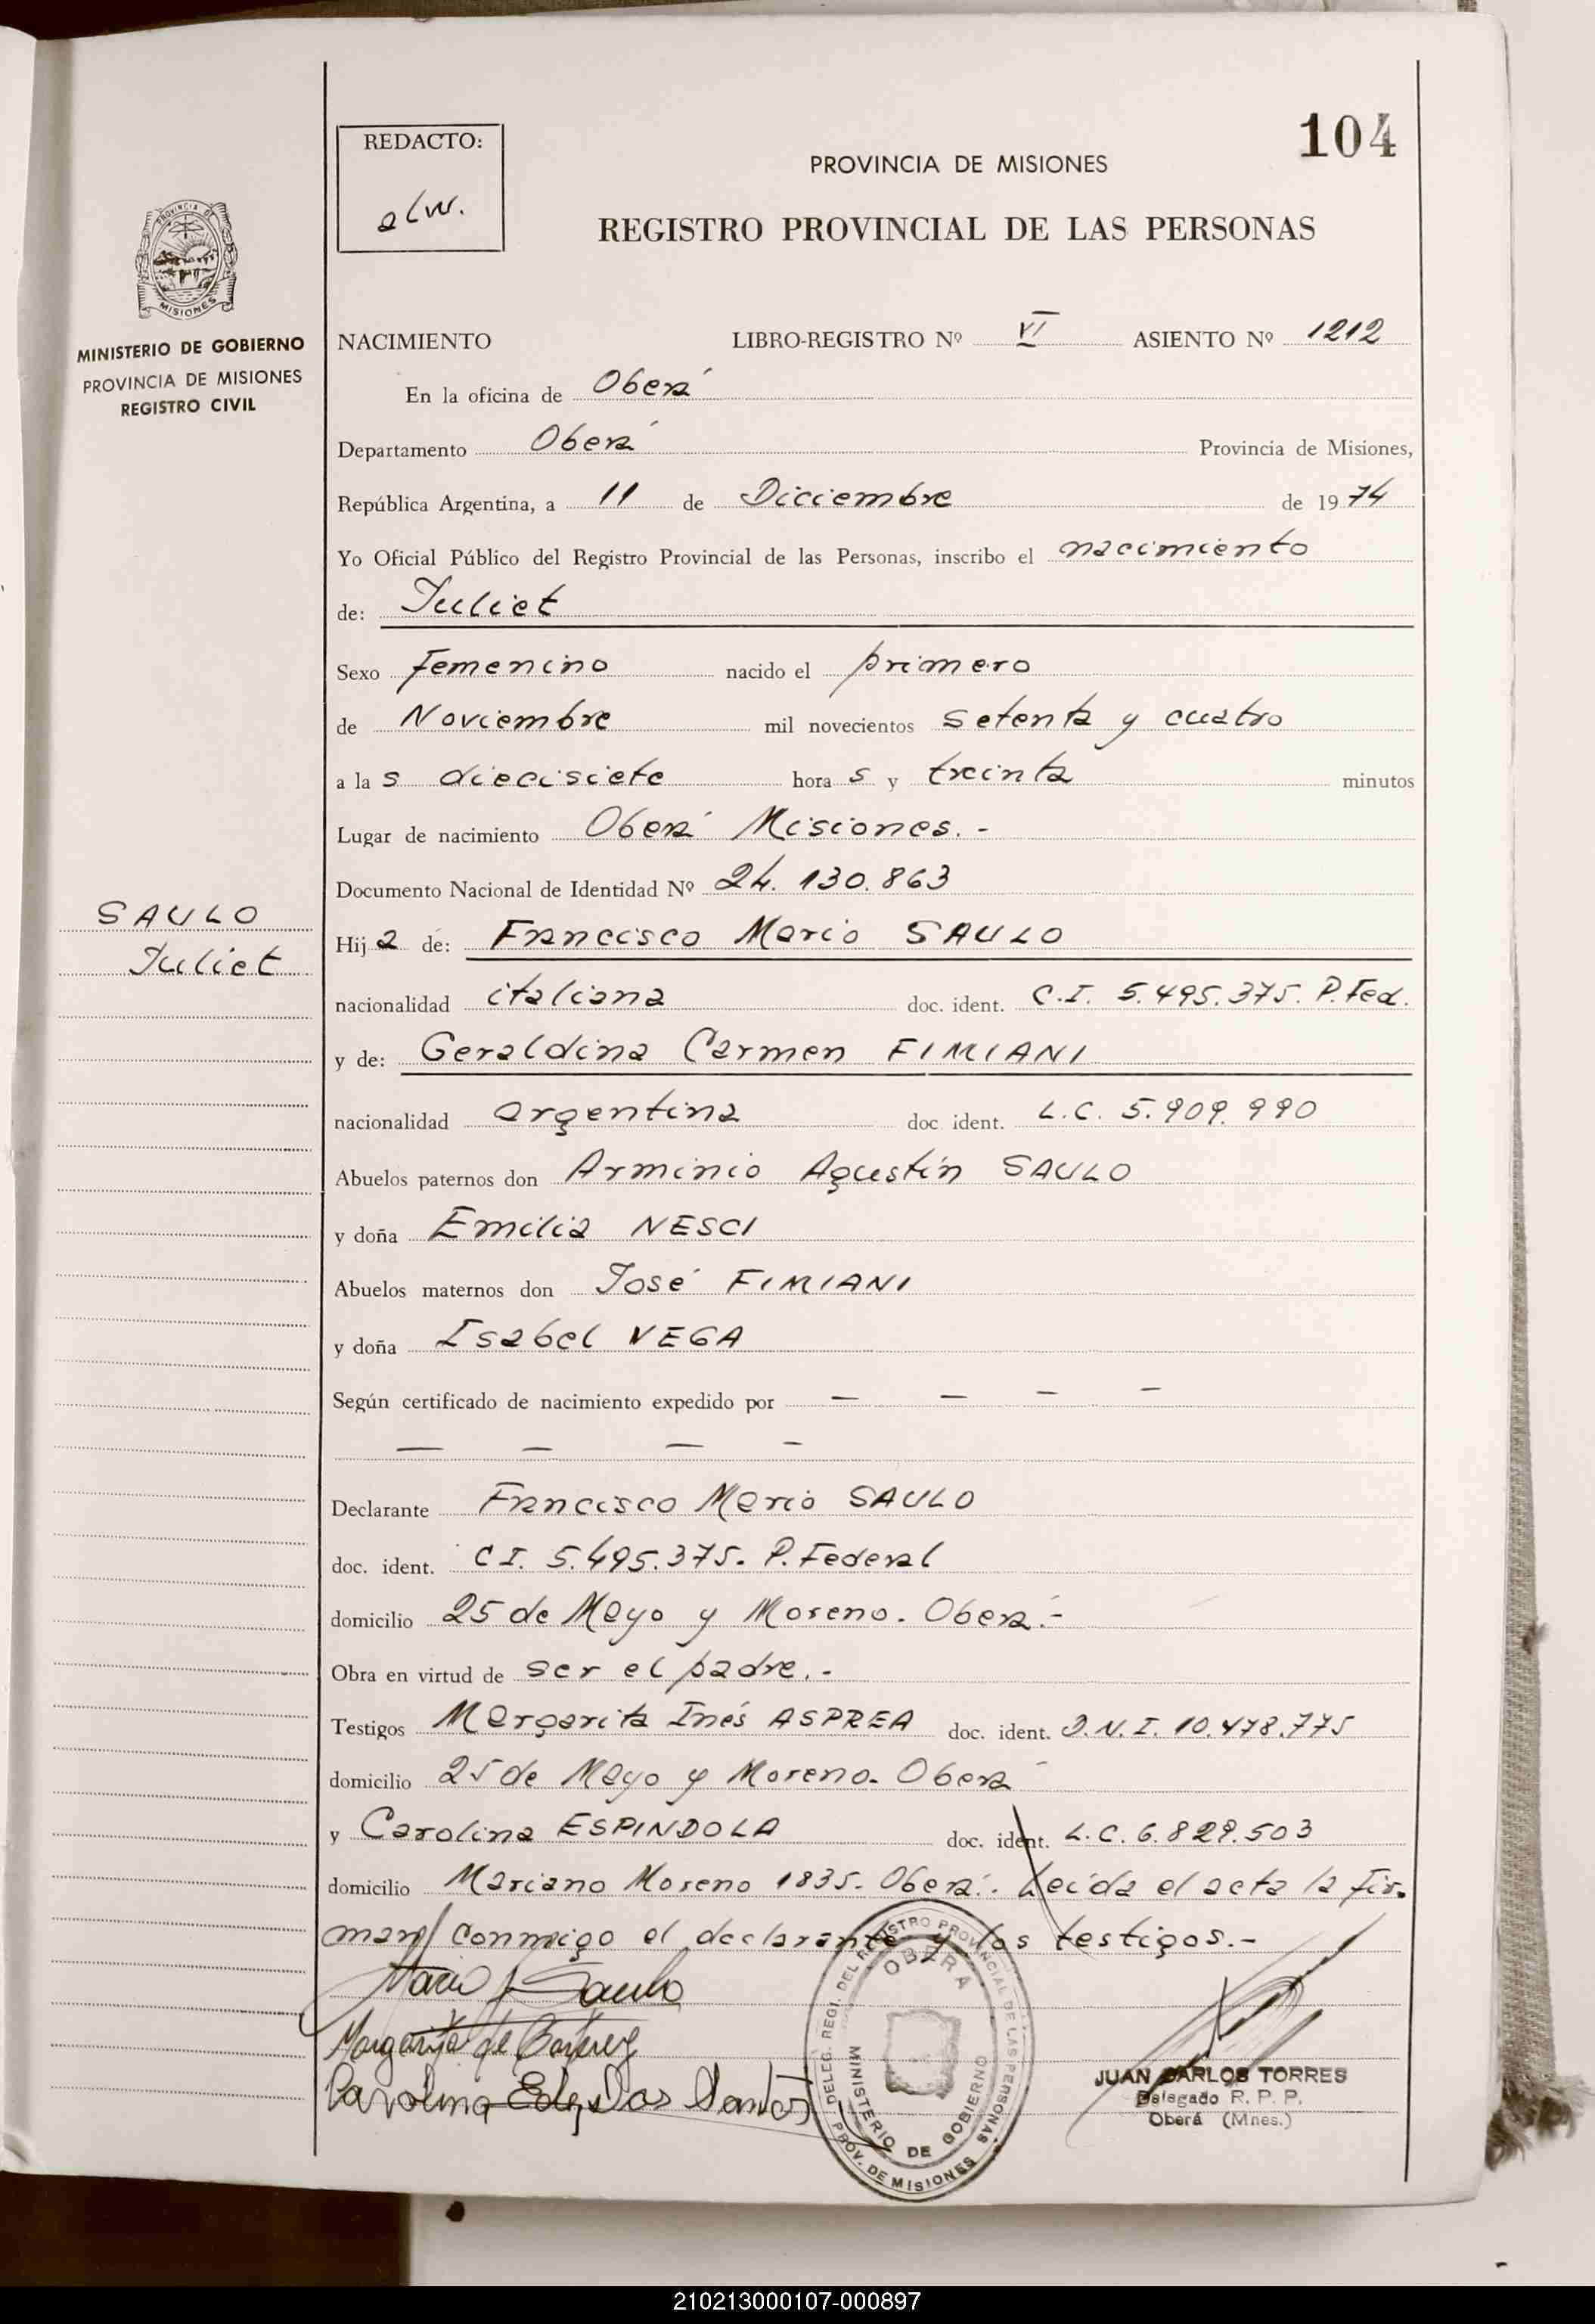 104
REDACTO:
PROVINCIA DE MISIONES
REGISTRO PROVINCIAL DE LAS PERSONAS
PROVINCIA DE
MISIONES
MINISTERIO DE GOBIERNO
PROVINCIA DE MISIONES
REGISTRO CIVIL
NACIMIENTO LIBRO-REGISTRO Nº VI ASIENTO Nº 1212
En la oficina de Oberá
Departamento Oberá Provincia de Misiones,
República Argentina, a 11 de Diciembre de 1974
Yo Oficial Público del Registro Provincial de las Personas, inscribo el nacimiento
de: Juliet
Sexo Femenino nacido el primero
de Noviembre mil novecientos setenta y cuatro
a la s diecisiete hora s y treinta minutos
Lugar de nacimiento Oberá Misiones.-
Documento Nacional de Identidad Nº 24.130.863
SAULO
Juliet
Hija de: Francisco Mario SAULO
nacionalidad italiana doc. ident. C.I. 5.495.375. P.Fed.
y de: Geraldina Carmen FIMIANI
nacionalidad argentina doc ident. L.C. 5.909.990
Abuelos paternos don Arminio Agustín SAULO
y doña Emilia NESCI
Abuelos maternos don José FIMIANI
y doña Isabel VEGA
Según certificado de nacimiento expedido por — — — —
— — — —
Declarante Francisco Mario SAULO
doc. ident. C I. 5.495.375. P. Federal
domicilio 25 de Mayo y Moreno. Oberá.-
Obra en virtud de ser el padre.-
Testigos Margarita Inés ASPREA doc. ident. D.N.I. 10.478.775
domicilio 25 de Mayo y Moreno. Oberá
y Carolina ESPINDOLA doc. ident. L.C. 6.829.503
domicilio Mariano Moreno 1835. Oberá.. Leída el acta la fir-
man conmigo el declarante y los testigos.-
Mario Saulo
Margarita de
Carolina Dos Santos
DELEG. REGI. DEL REGISTRO PROVINCIAL DE LAS PERSONAS
OBERA
MINISTERIO DE GOBIERNO
PROV. DE MISIONES
JUAN CARLOS TORRES
Delegado R. P. P.
Oberá (Mnes.)
210213000107-000897